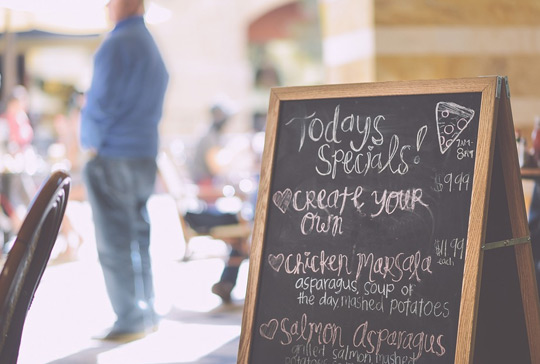 Todays
Specials!
7AM-
8AM
$9.99
Create Your
Own
$11.99
each
Chicken Marsala
asparagus, soup of
the day, mashed potatoes
Salmon Asparagus
grilled salmon, mashed
potatoes